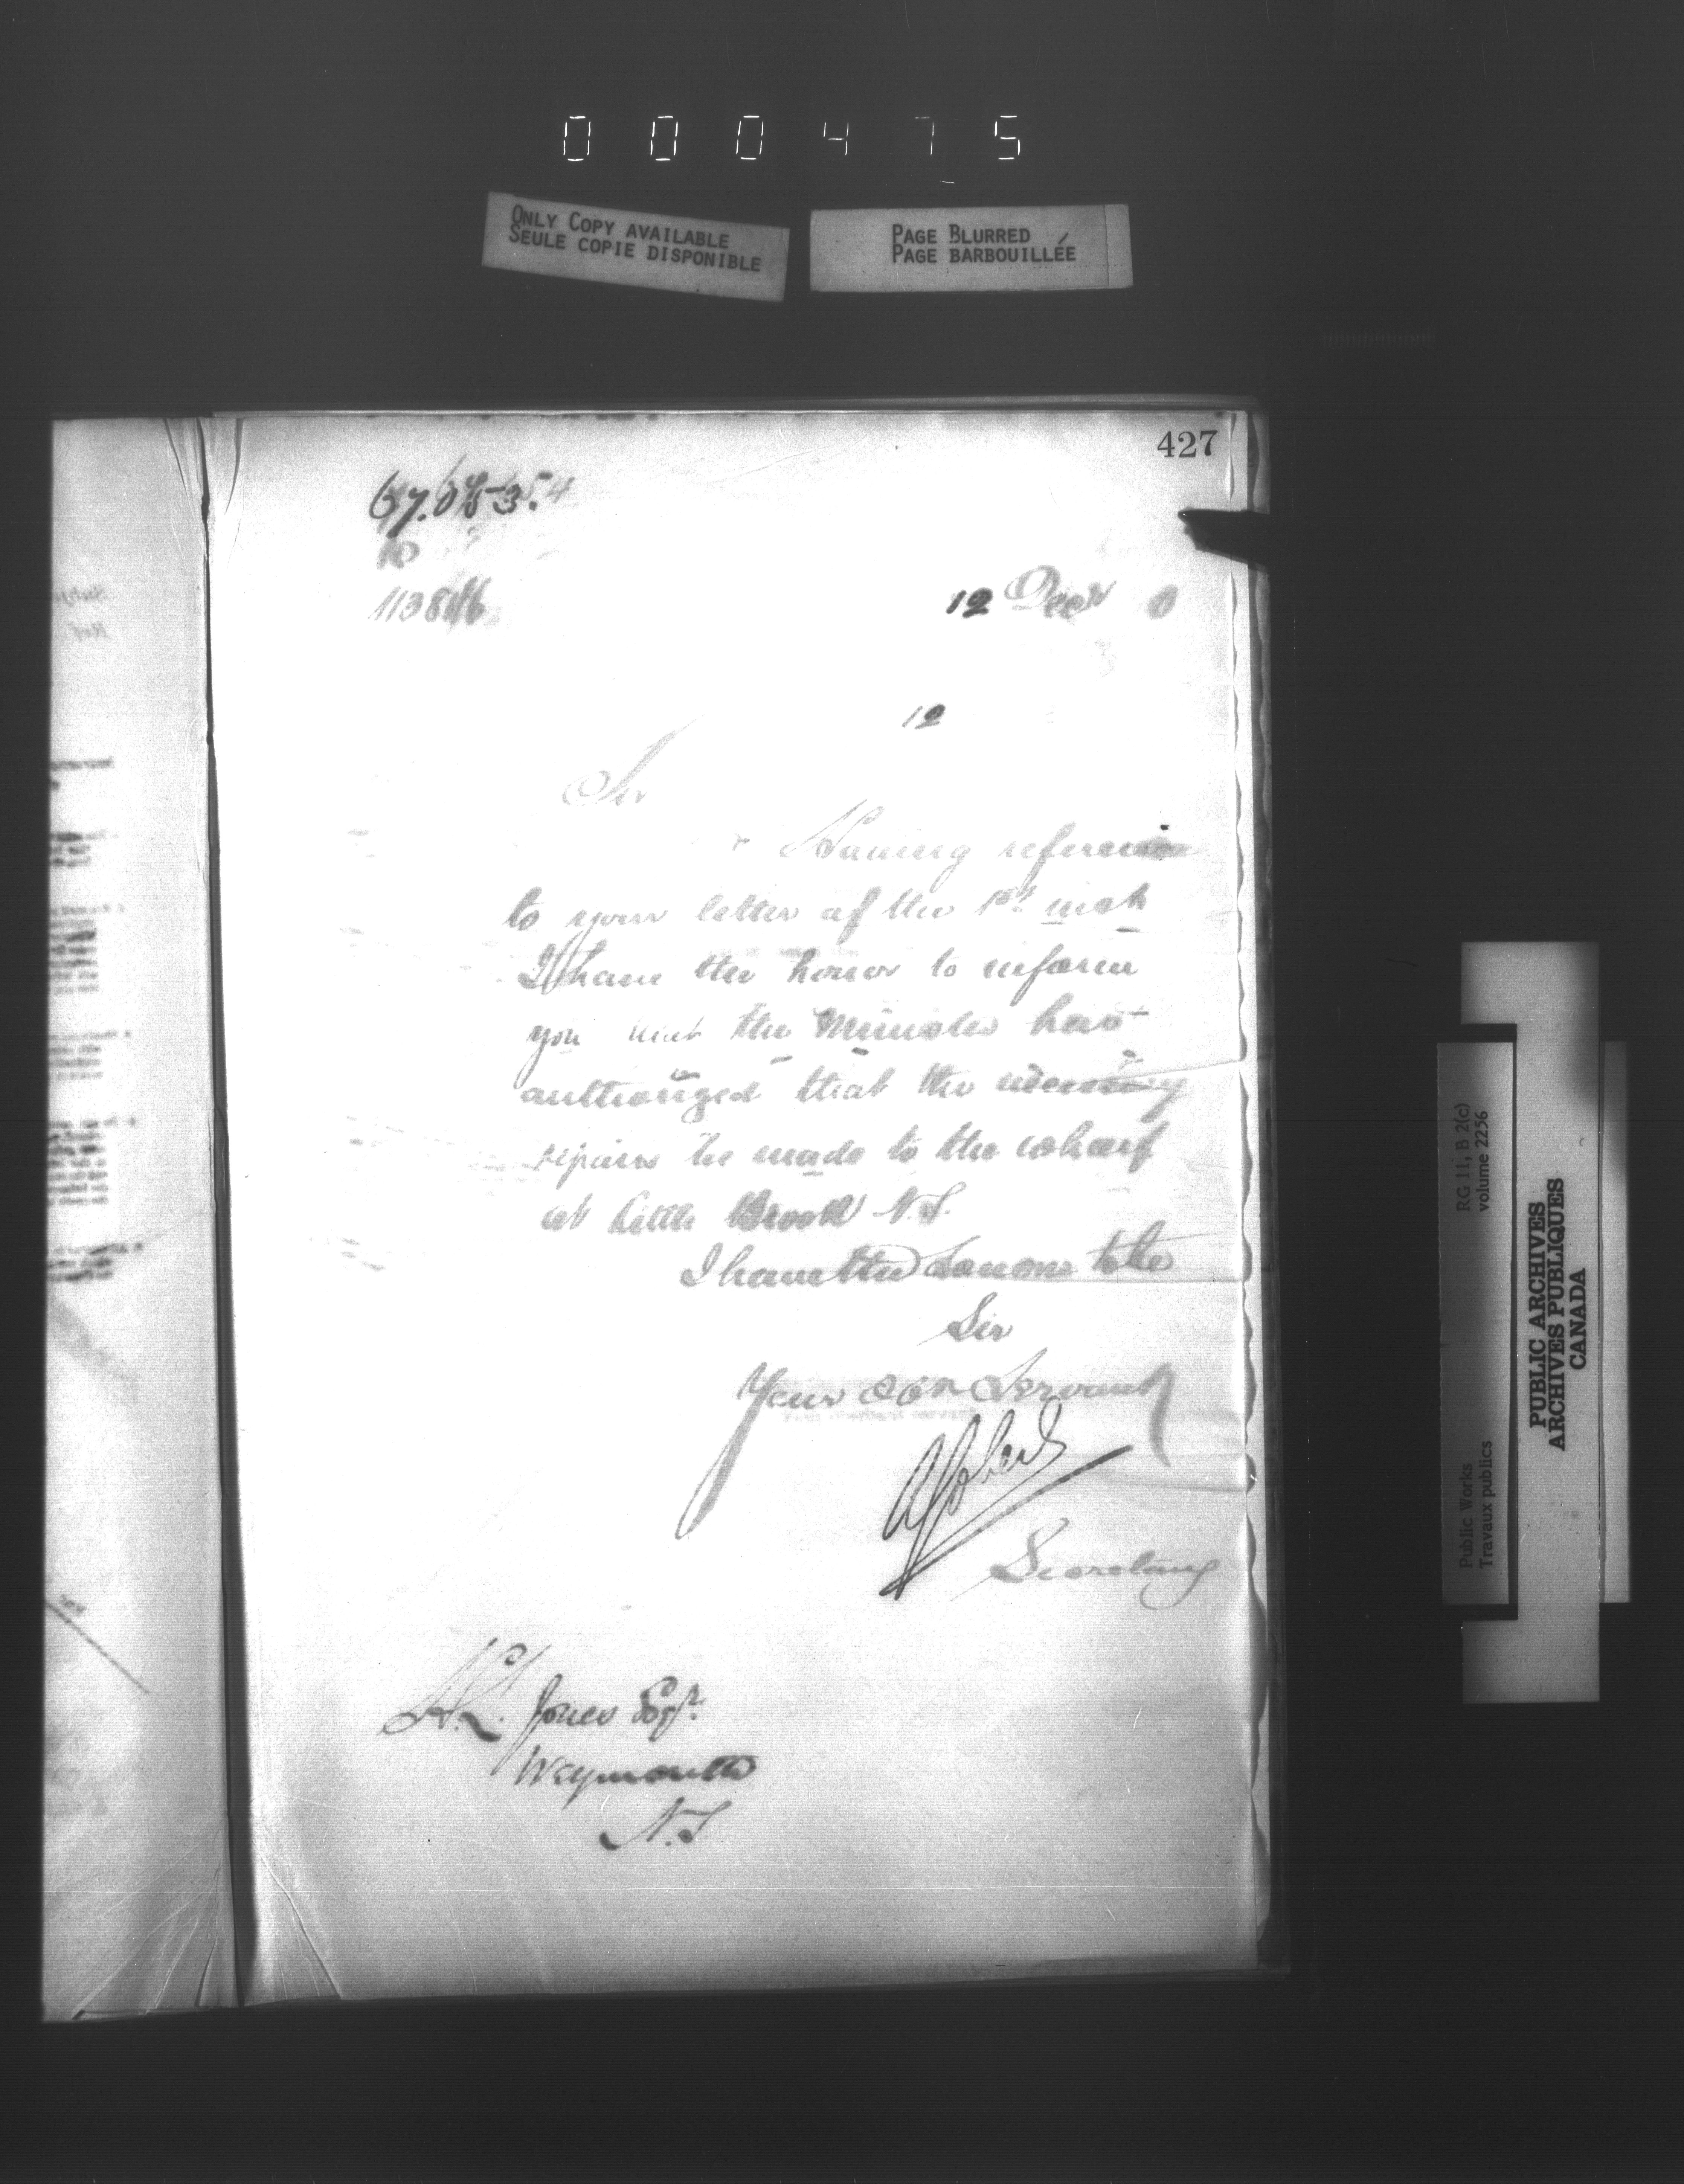 000475
ONLY COPY AVAILABLE
SEULE COPIE DISPONIBLE
PAGE BLURRED
PAGE BARBOUILLÉE
427
10
12 Decr 0
12
Sir
Having reference
to your letter of the 1st inst
I have the honor to inform
you that the Minister has
authorized that the necessary
repairs be made to the wharf
at Little Brook N.S.
I have the honor to be
Sir
Your Obt Servant
Secretary
H.L. Jones Esqr.
Weymouth
N.S
RG 11, B 2(c)
volume 2256
Public Works
Travaux publics
PUBLIC ARCHIVES
ARCHIVES PUBLIQUES
CANADA